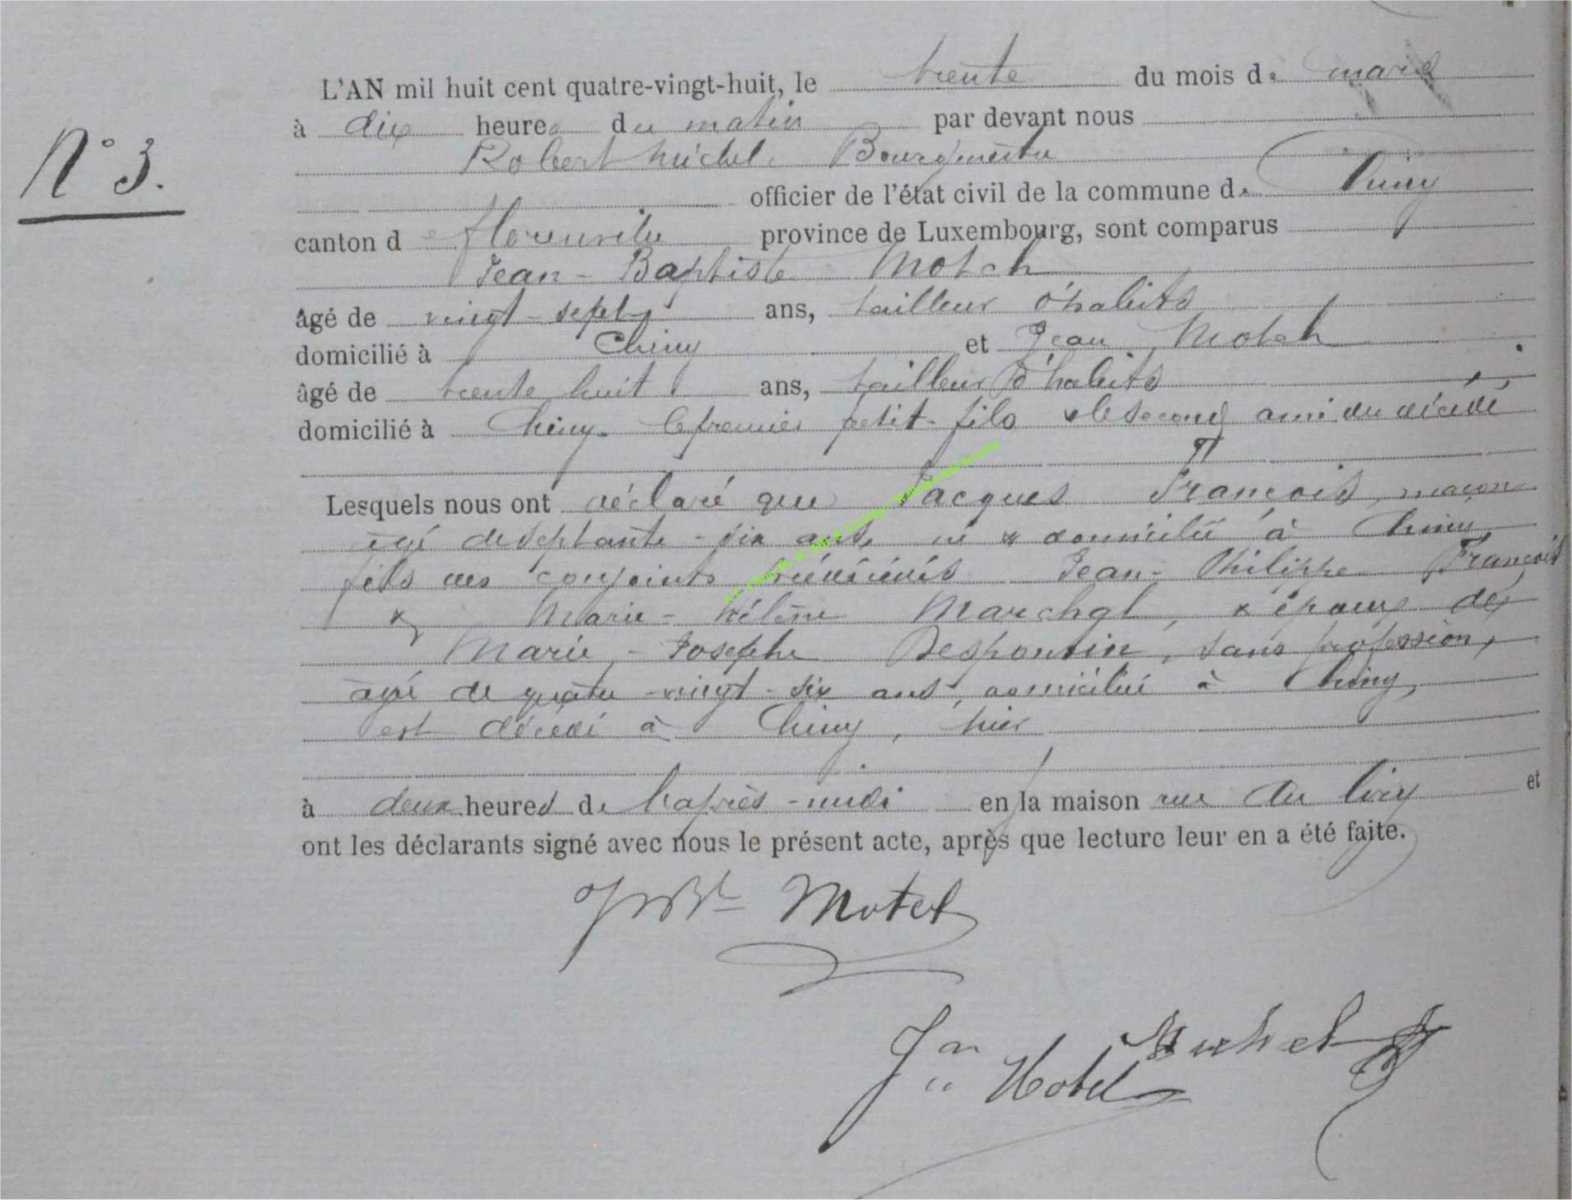 L'AN mil huit cent quatre-vingt-huit, le trente du mois de mars
à dix heures du matin par devant nous
N° 3.
Robert Michel, Bourgmestre
officier de l'état civil de la commune de Chiny
canton de florenville province de Luxembourg, sont comparus
Jean-Baptiste Motch
âgé de vingt-sept ans, tailleur d'habits
domicilié à Chiny et Jean Motch
âgé de trente huit ans, tailleur d'habits
domicilié à Chiny. le premier petit-fils & le second ami du décédé
Lesquels nous ont déclaré que Jacques François, maçon
âgé de septante-six ans, né & domicilié à Chiny
fils des conjoints Jean-Philippe François
& Marie-Hélène Marchal, & époux de
Marie-Josephe Despontin, sans profession,
âgé de quatre-vingt-six ans, domicilié à Chiny,
est décédé à Chiny, hier
à deux heures de l'après-midi en la maison rue du et
ont les déclarants signé avec nous le présent acte, après que lecture leur en a été faite.
JnBte Motch
Michel
Jn Motch